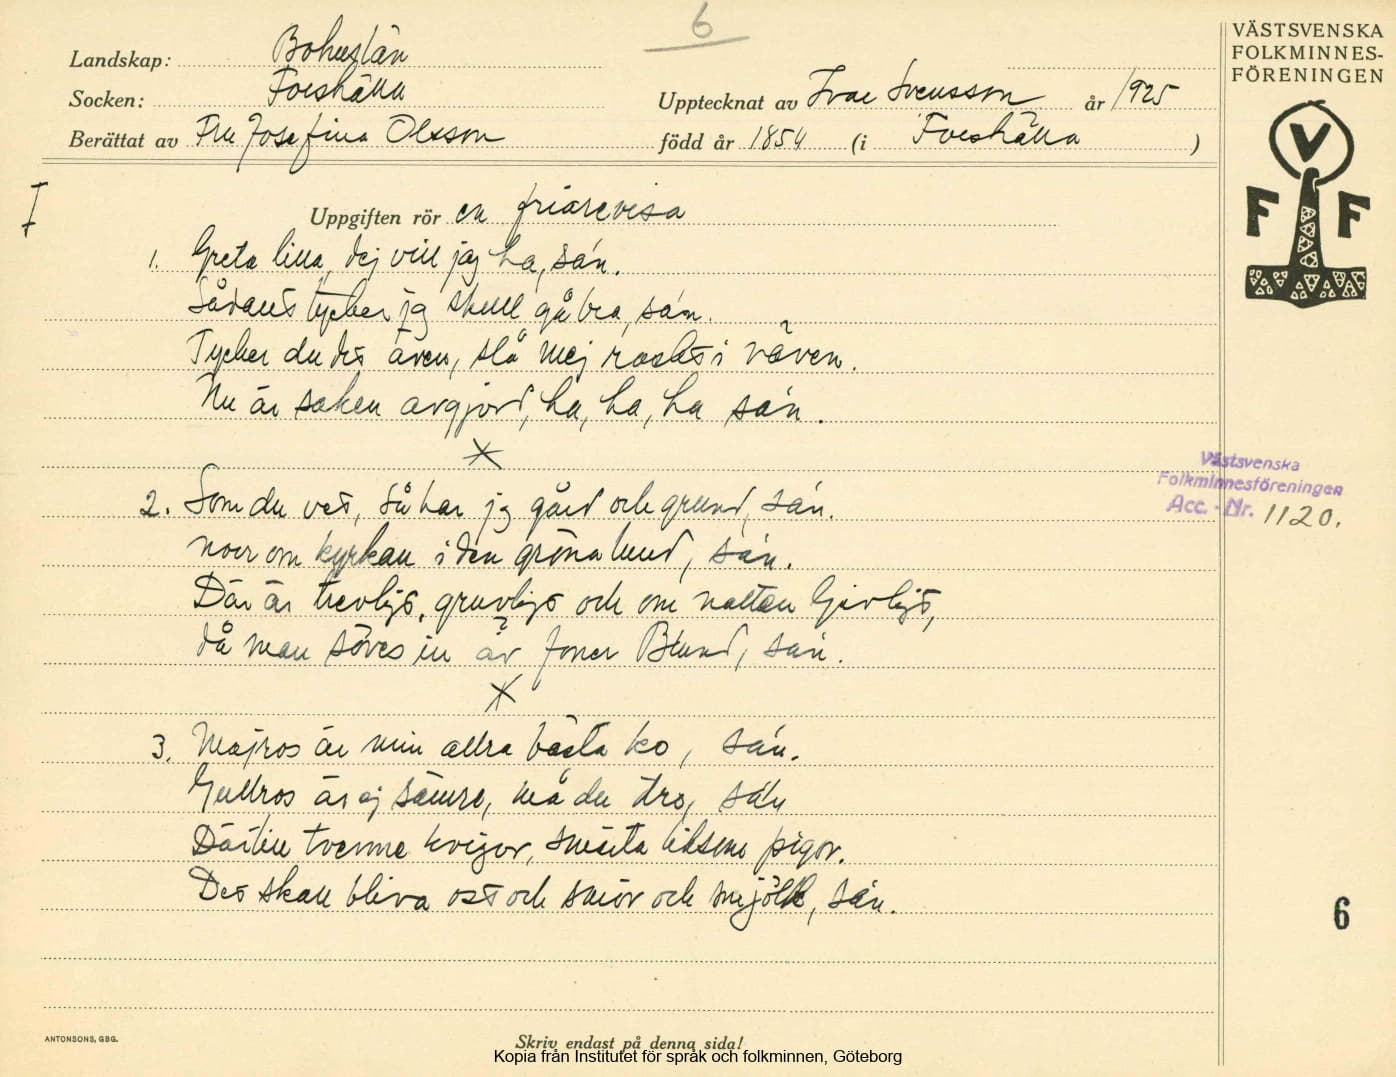 6
Landskap: Bohuslän
Socken: Foeshälla
Berättat av Fru Josefina Olsson
Upptecknat av Ivar Svensson år 1925
född år 1854 (i Foeshälla)
VÄSTSVENSKA
FOLKMINNES-
FÖRENINGEN
V
F F
I
Uppgiften rör en friarevisa
1. Greta lilla, dej vill jag ha, sán.
Sådant tycker jag skull gå bra, sán.
Tycker du det även, slå mej raskt i näven.
Nu är saken avgjord, ha, ha, ha sán.
2. Som du vet, så har jg gård och grund, sán.
norr om kyrkan i den gröna lund, sán.
Där är trevligt, gruvligt och om natten ljuvligt,
då man söves in av Joner Blund, sán.
3. Majros är min allra bästa ko, sán.
Gullros är ej sämre, må du tro, sán
Därtill tvenne kvigor, smärta liksom pigor.
Det skall bliva ost och smör och mjölk, sán.
Västsvenska
Folkminnesföreningen
Acc. - Nr. 1120.
6
ANTONSONS, GBG.
Skriv endast på denna sida!
Kopia från Institutet för språk och folkminnen, Göteborg